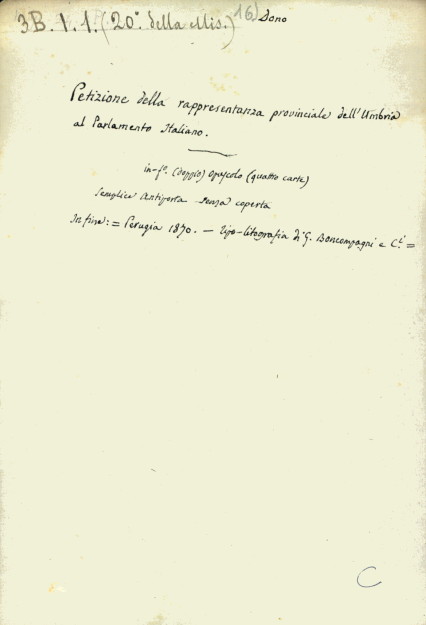 3B.V.1.(20° della Mis.) 16) Dono
Petizione della rappresentanza provinciale dell'Umbria
al Parlamento Italiano.
in-f°. (doppio) opuscolo (quattro carte)
Semplice Antiporta senza coperta
In fine: = Perugia 1870. — Tipo-litografia di G. Boncompagni e C.i =
C